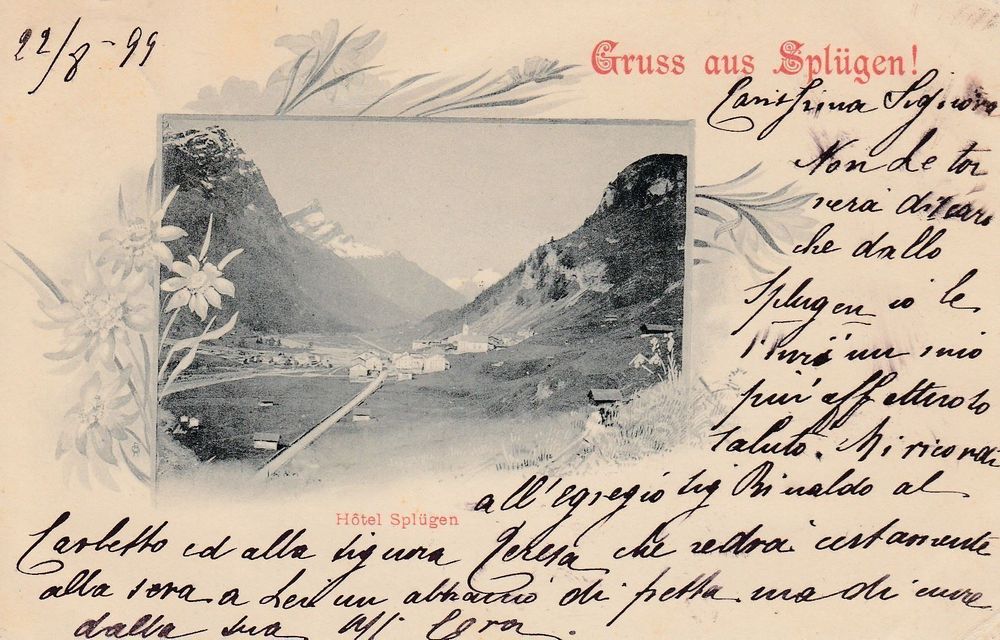 22/8-99
Gruss aus Splügen!
Carissima Signora
Non le tor
nerà discaro
che dallo
Splugen io le
invii un mio
più affettuoso
saluto. Mi ricordi
all'egregio Sig Rinaldo al
Carletto ed alla signora Teresa che vedrà certamente
alla sera a Lei un abbraccio di fretta ma di cuore
dalla sua
Hôtel Splügen